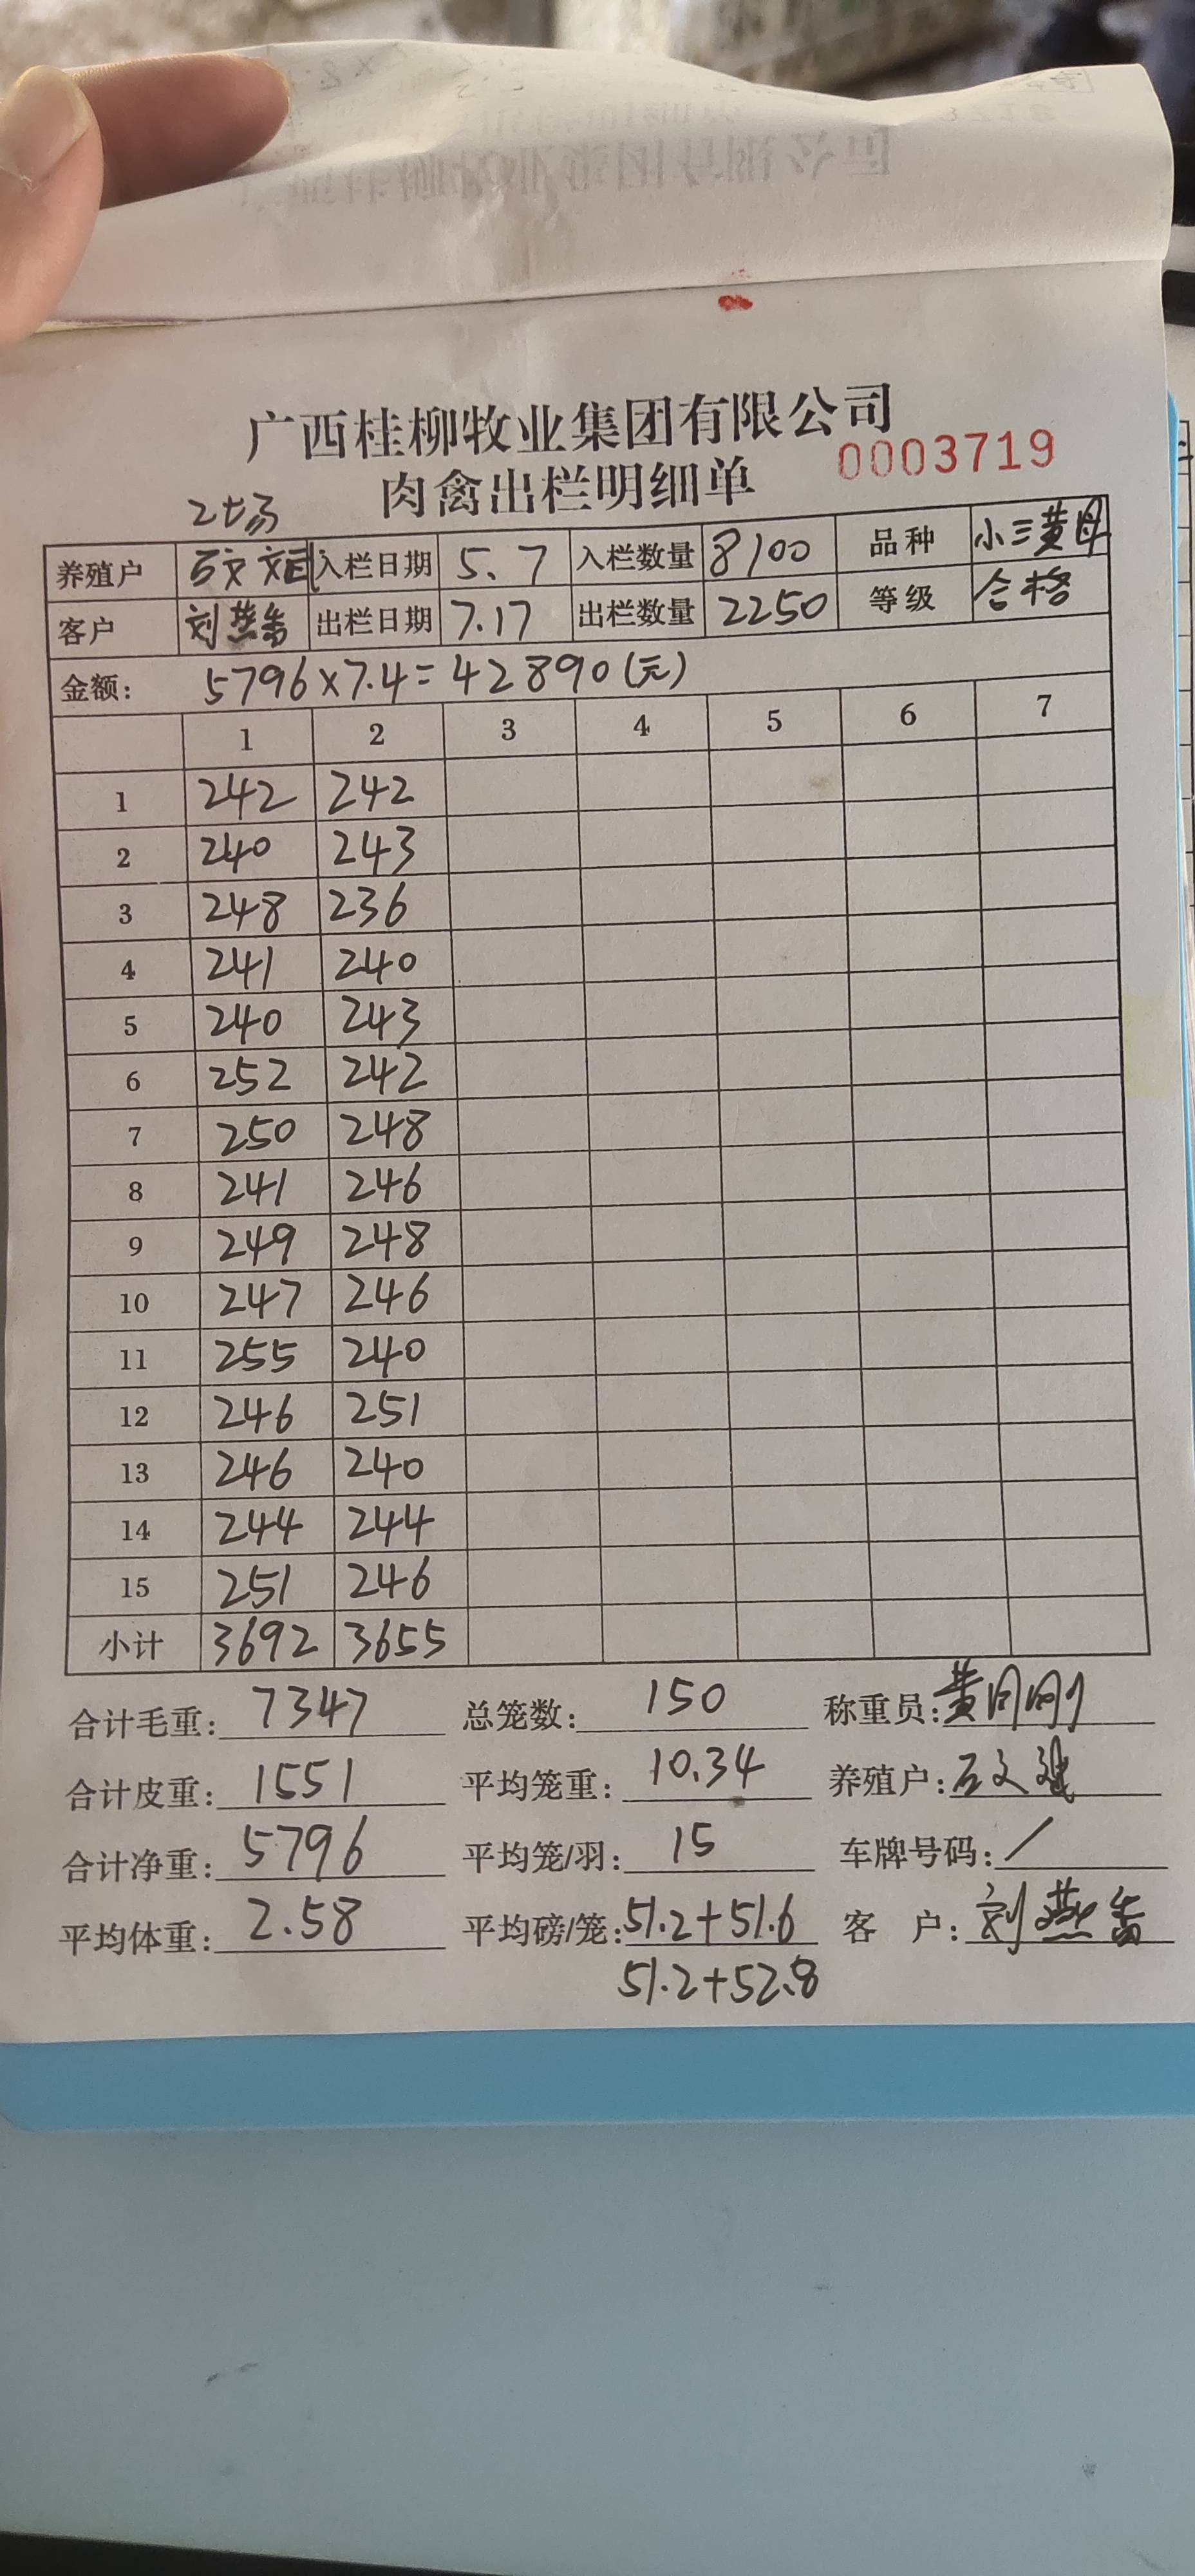 广西桂柳牧业集团有限公司
肉禽出栏明细单 0003719
养殖户 入栏日期 5.7 入栏数量 8100 品种 小三黄母
客户 刘燕 出栏日期 7.17 出栏数量 2250 等级 合格
金额: 5796×7.4=42890(元)
1 2 3 4 5 6 7
1 242 242
2 240 243
3 248 236
4 241 240
5 240 243
6 252 242
7 250 248
8 241 246
9 249 248
10 247 246
11 255 240
12 246 251
13 246 240
14 244 244
15 251 246
小计 3692 3655
合计毛重: 7347 总笼数: 150 称重员: 黄
合计皮重: 1551 平均笼重: 10.34 养殖户: 石文
合计净重: 5796 平均笼/羽: 15 车牌号码: /
平均体重: 2.58 平均磅/笼: 51.2+51.6 客 户: 刘燕
51.2+52.8